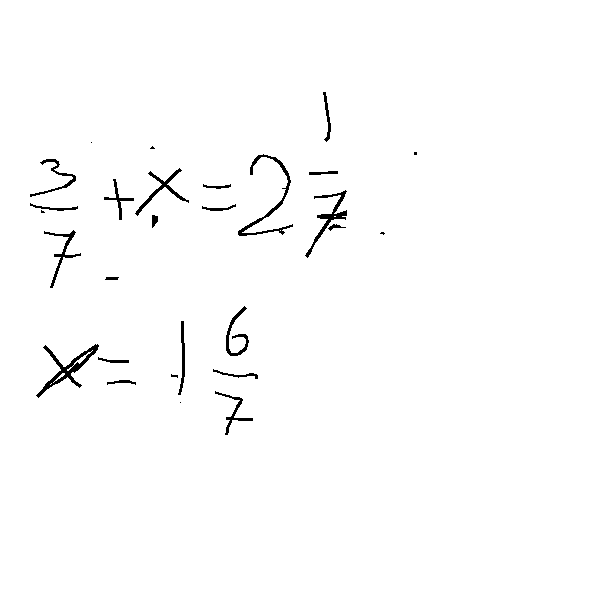 3/7 + x = 2 1/7
x = 1 6/7